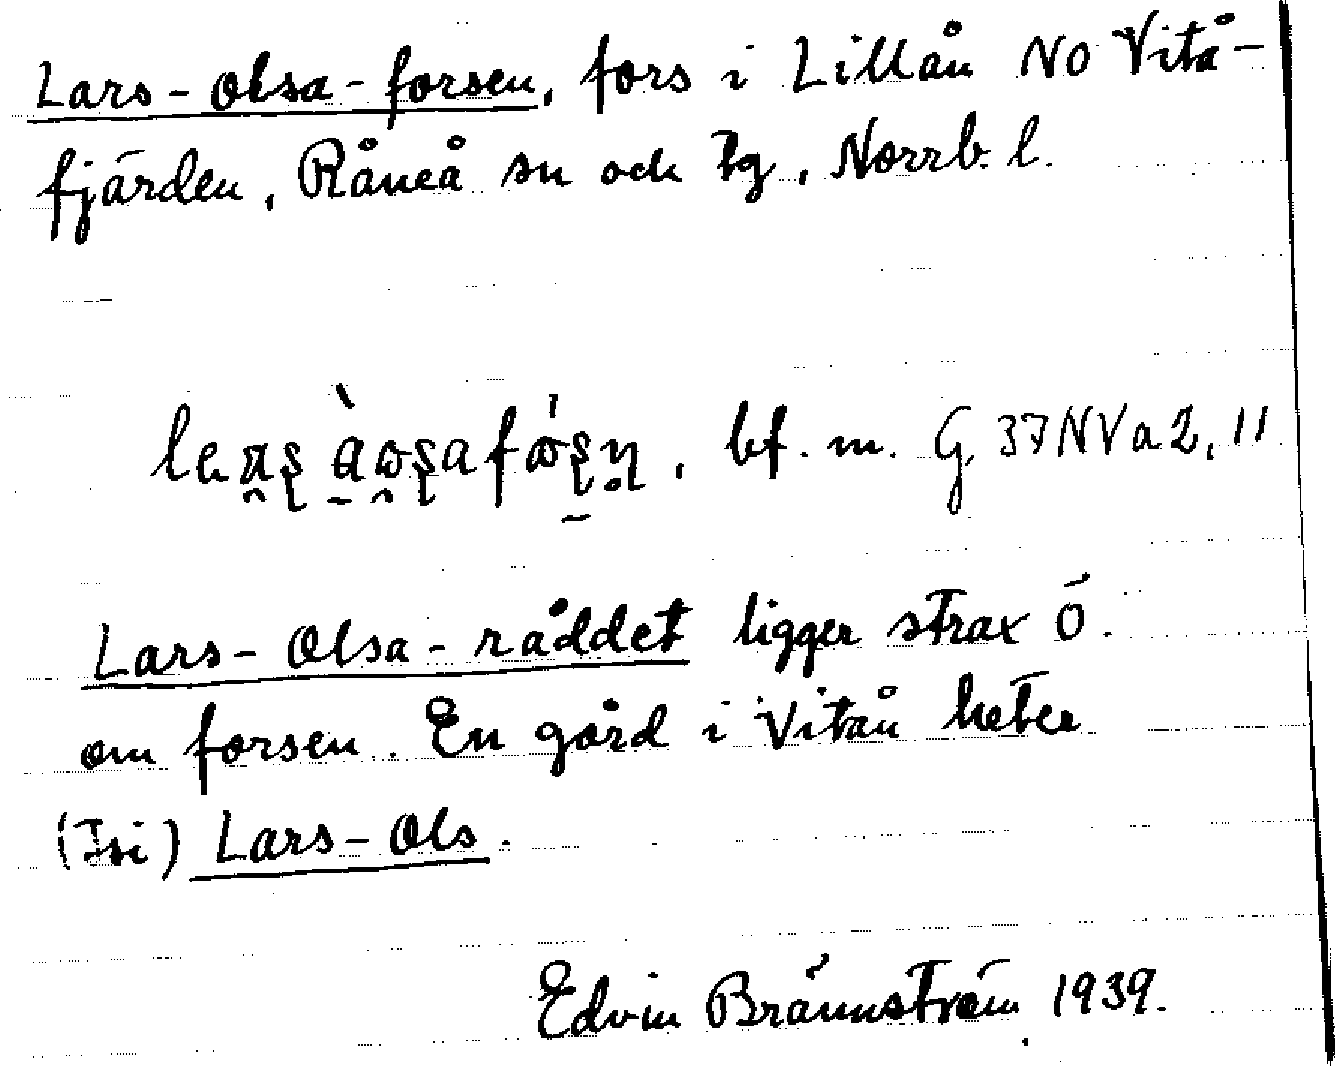 Lars-Olsa-forsen, fors i Lillån NO Vitå-
fjärden, Råneå sn och tg, Norrb. l.
bf. m. G 37NVa2, 11
Lars-Olsa-råddet ligger strax Ö.
om forsen. En gård i Vitån heter
(Isi) Lars-Ols.
Edvin Brännström 1939.